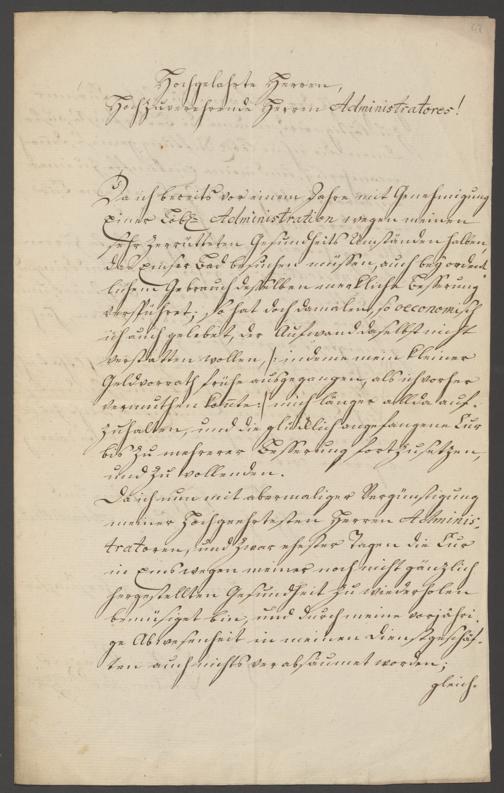 Hochgelahrte Herren,
Hochzuverehrende Herren Administratores!
Da ich bereits vor einem Jahre mit Genehmigung
Einer Löbl. Administration wegen meinen
sehr zerrütteten Gesundheits Umständen halben
das Emser Bad besuchen müssen, auch bey ordent-
lichem Gebrauch desselben merkliche Besserung
verspühret; so hat doch damalen, so oeconomisch
ich auch gelebet, der Aufwand daselbst nicht
verstatten wollen, /: indeme mein kleiner
Geldvorrath frühe ausgegangen, als ich vorher
vermuthen konte :/ mich länger allda auf-
zuhalten, und die glücklich angefangene Cur
bis zu mehrerer Besserung fortzusetzen,
und zu vollenden.
Da ich nun mit abermaliger Vergünstigung
meiner Hochgeehrtesten Herren Adminis-
tratoren, und zwar ehester Tagen die Cur
in Ems wegen meiner noch nicht gänzlich
hergestellten Gesundheit zu wiederholen
bemüsiget bin, und durch meine vorjähri-
ge Abwesenheit in meinen Dienstgeschäf-
ten auch nichts verabsäumet worden;
gleich-